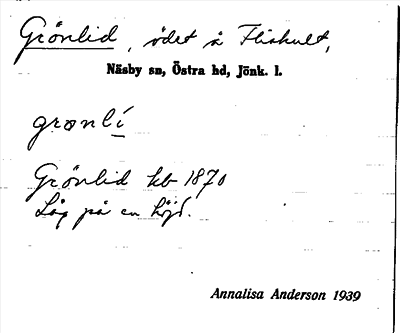 Grönlid, ödet å Fliskult,
Näsby sn, Östra hd, Jönk. l.
grønlí
Grönlid kb 1870
Låg på en höjd.
Annalisa Anderson 1939